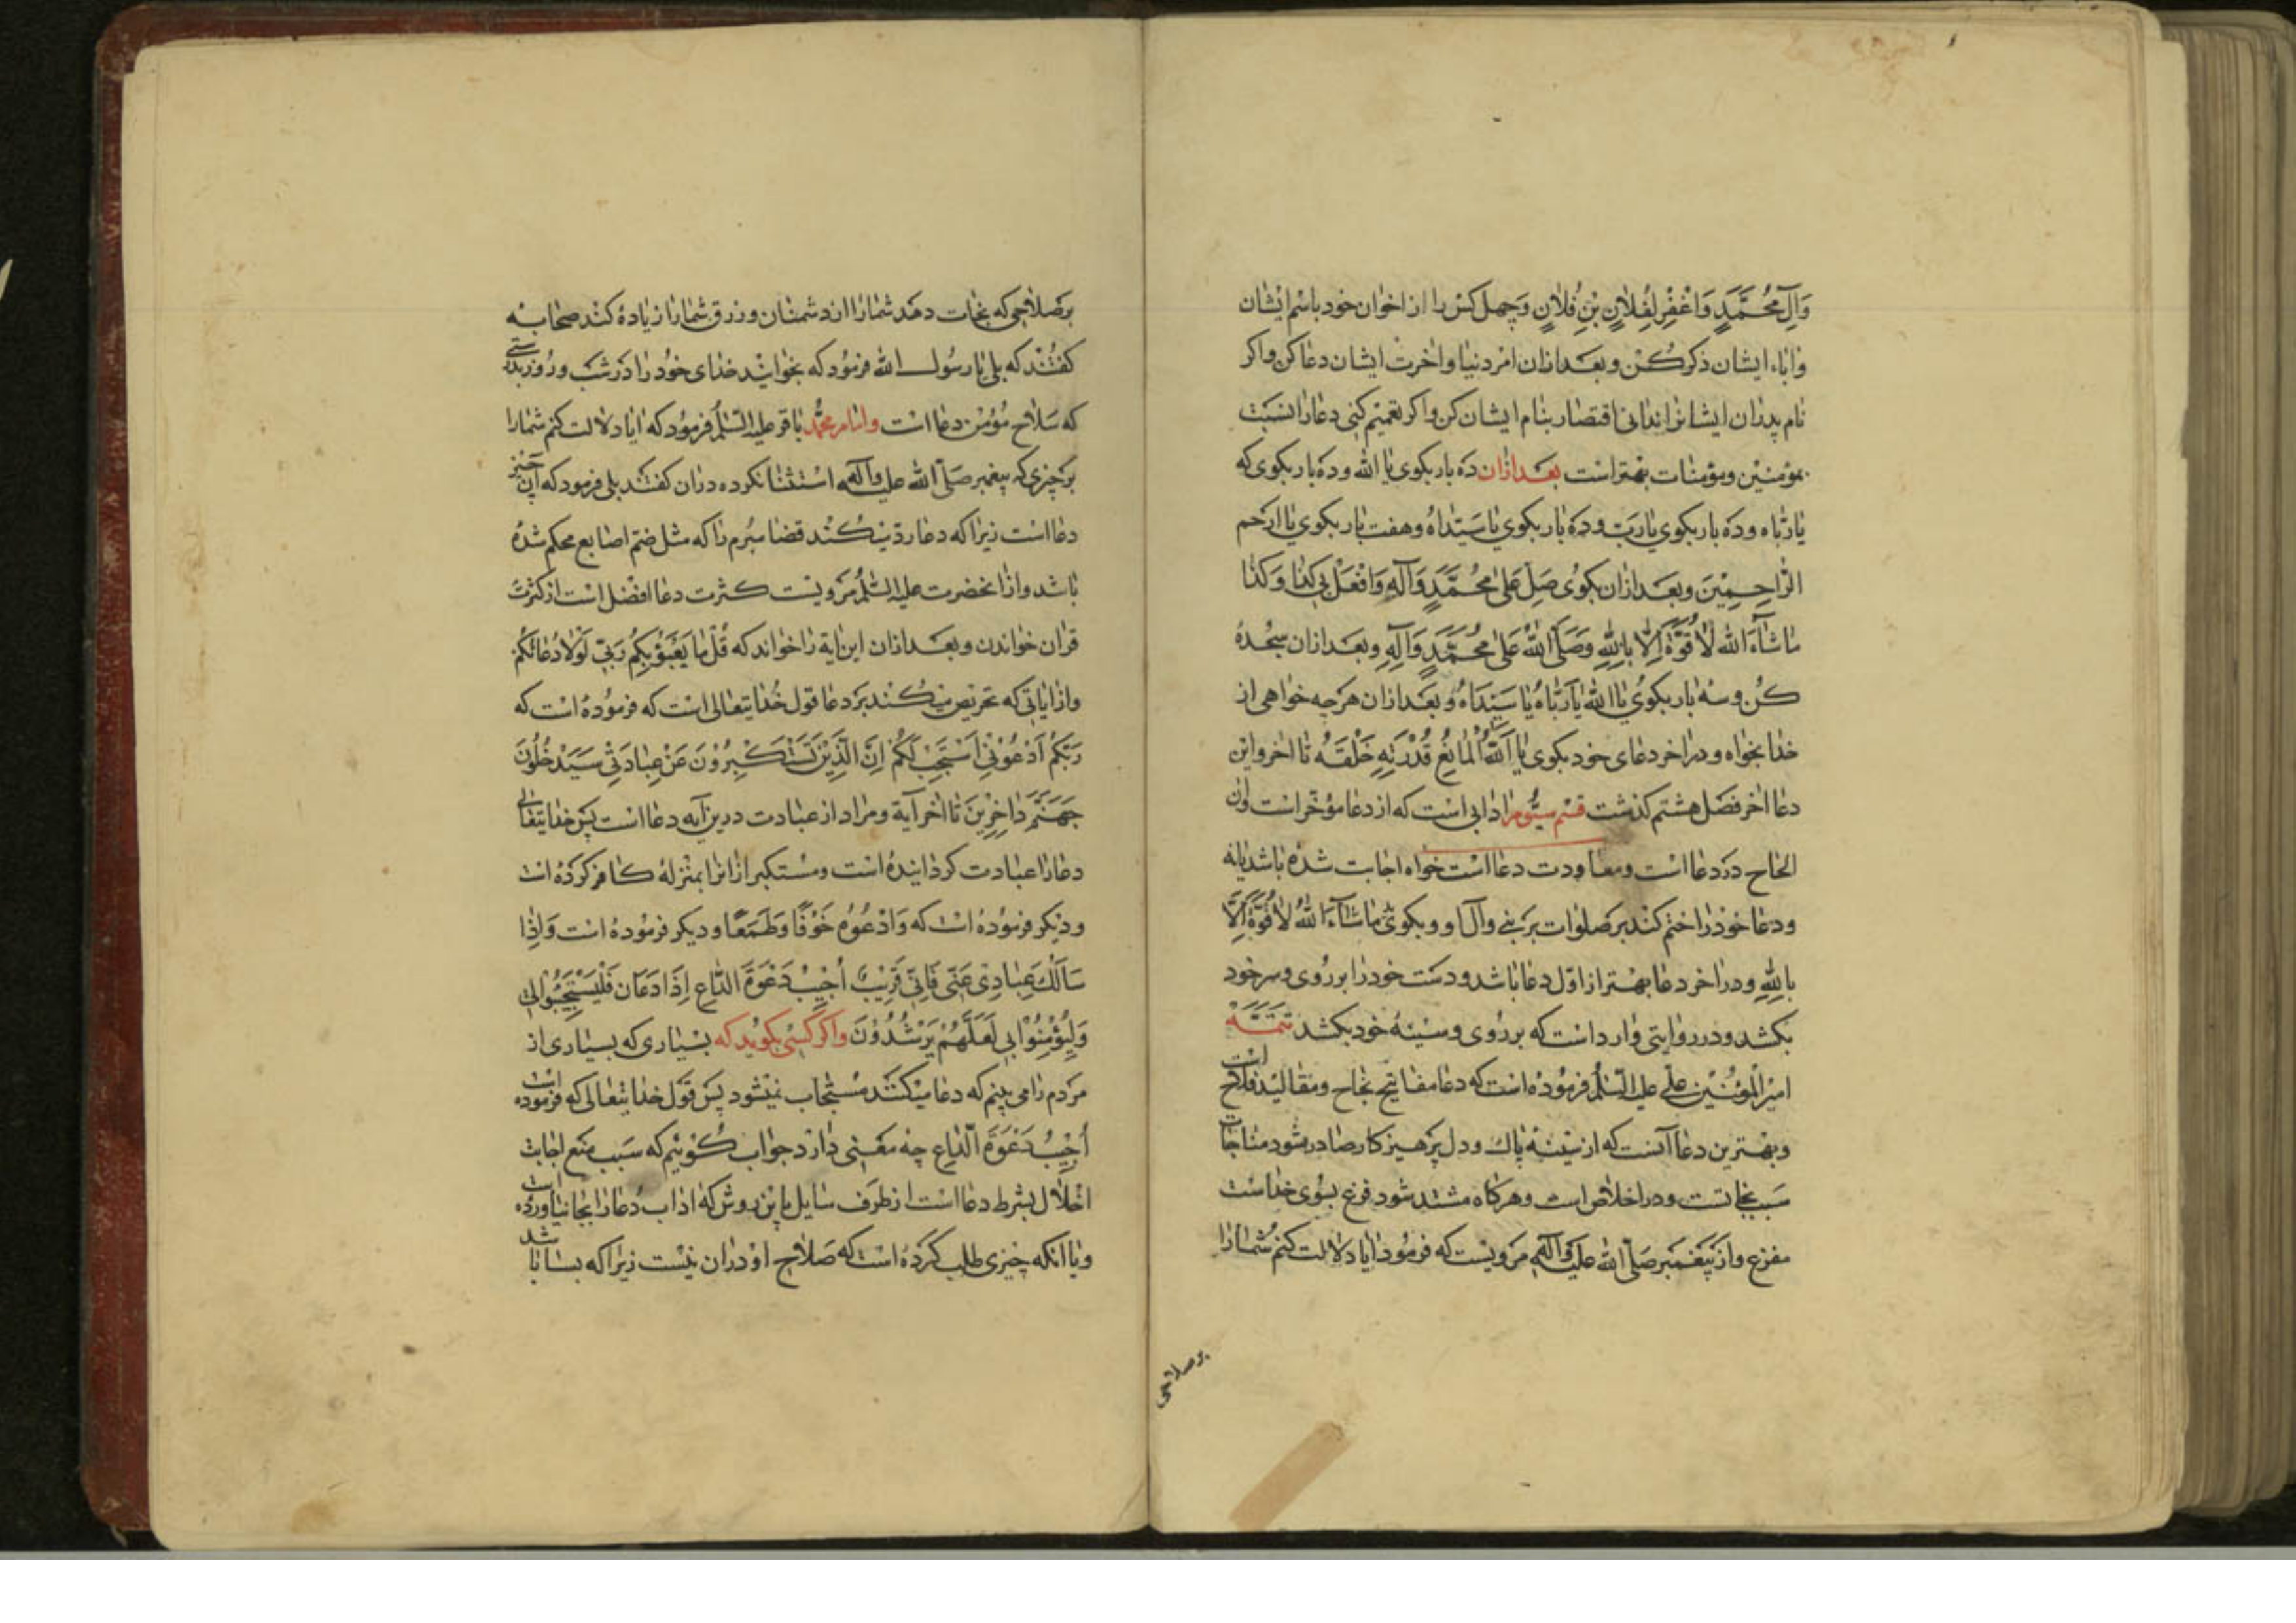 وَآلِ مُحَمَّدٍ وَاغْفِرْ لِفُلانٍ بْنِ فُلانٍ وَچهل کس را از اخوان خود باسم ایشان
واباء ایشان ذکر کن و بعد ازان امر دنیا واخرت ایشان دعا کن واکر
نام پدران ایشانرا ندانی اقتصار بنام ایشان کن واکر تعمیم کنی دعا را نسبت
بمؤمنین ومؤمنات بهتر است بعد ازان ده بار بکوی یا الله و ده بار بکوی که
یا ربّاه و ده بار بکوی یا ربّ و ده بار بکوی یا سیّداهُ وهفت بار بکوی یا ارحم
الرّاحِمِیْنَ وبعد ازان بکوی صَلِّ عَلیٰ مُحَمَّدٍ وَآلِهِ وَافْعَلْ بی کذا وَکذا
ماشآءَ الله لا قُوَّةَ اِلّا بِاللهِ وَصَلَّی اللهُ عَلیٰ مُحَمَّدٍ وَآلِهِ وبعد ازان سجده
کن وسه بار بکوی یا الله یا ربّاهُ یا سیّداهُ و بعد ازان هرچه خواهی از
خدا بخواه و در اخر دعای خود بکوی یا اَللّهُ الْمانِعُ قُدْرَتِهِ خَلْقَهُ تا اخر واین
دعا اخر فصل هشتم کذشت قسم سیّوم ادابی است که از دعا مؤخّر است وان
الحاح در دعا است ومعاودت دعا است خواه اجابت شده باشد یا نه
ودعا خود را ختم کند بر صلوات بر نبی وآل او و بکوی ماشآءَ اللهُ لا قُوَّةَ اِلّا
بِاللهِ ودر اخر دعا بهتر از اوّل دعا باشد ودست خود را بر روی وسر خود
بکشد ودر روایتی وارد است که بر روی وسینهٔ خود بکشد تَتِمَّه
امیر المؤمنین علی علیه السّلام فرموده است که دعا مفاتیح نجاح ومقالید فلاح است
وبهترین دعا آنست که از سینهٔ پاک ودل پرهیزکار صادر شود مناجات
سبب نجاتست ودر اخلاص است وهرکاه مشتد شود فزع بسوی خداست
مفزع واز پیغمبر صلّی الله علیه وآله مرویست که فرمود ایا دلالت کنم شما را
بر صلاحی
بر صلاحی که نجات دهد شما را از دشمنان ورزق شما را زیاده کند صحابه
کفتند که بلی یا رسول الله فرمود که بخوانید خدای خود را در شب وروز بدرستی
که سلاح مؤمن دعا است وامام محمّد باقر علیه السّلام فرمود که ایا دلالت کنم شما را
بر چیزی که پیغمبر صلّی الله علیه وآله استثنا نکرده دران کفتند بلی فرمود که آن چیز
دعا است زیرا که دعا ردّ میکند قضا مبرم را که مثل ضمّ اصابع محکم شده
باشد واز انحضرت علیه السّلام مرویست کثرت دعا افضل است از کثرت
قران خواندن وبعد ازان این ایة را خواند که قُلْ ما یَعْبَؤُ بِکُمْ رَبّی لَوْلا دُعائکُمْ
واز ایاتی که تحریص میکند بر دعا قول خدایتعالی است که فرموده است که
رَبّکُمْ اُدْعُوْنی اَسْتَجِبْ لَکُمْ اِنَّ الَّذِیْنَ یَسْتَکْبِرُوْنَ عَنْ عِبادَتی سَیَدْخُلُونَ
جَهَنَّمَ داخِرِیْنَ تا اخر آیة ومراد از عبادت درین آیه دعا است پس خدایتعالی
دعا را عبادت کردانیده است ومستکبر ازانرا بمنزلهٔ کافر کرده است
ودیکر فرموده است که وَادْعُوْهُ خَوْفًا وَطَمَعًا ودیکر فرموده است وَاِذا
سَاَلَكَ عِبادِی عَنّی فَاِنّی قَرِیْبٌ اُجِیْبُ دَعْوَةَ الدّاعِ اِذَا دَعَانِ فَلْیَسْتَجِیْبُوْالی
وَلْیُؤْمِنُوْا بی لَعَلَّهُمْ یَرْشُدُوْنَ واکر کسی بکوید که بسیاری که بسیاری از
مردم را می بینم که دعا میکنند مستجاب نمیشود پس قول خدایتعالی که فرموده است
اُجِیْبُ دَعْوَةَ الدّاعِ چه معنی دارد جواب کوئیم که سبب منع اجابت
اخلال بشرط دعا است از طرف سایل باین روش که اداب دعا را بجا نیاورده است
ویا انکه چیزی طلب کرده است که صلاح او دران نیست زیرا که بسا باشد